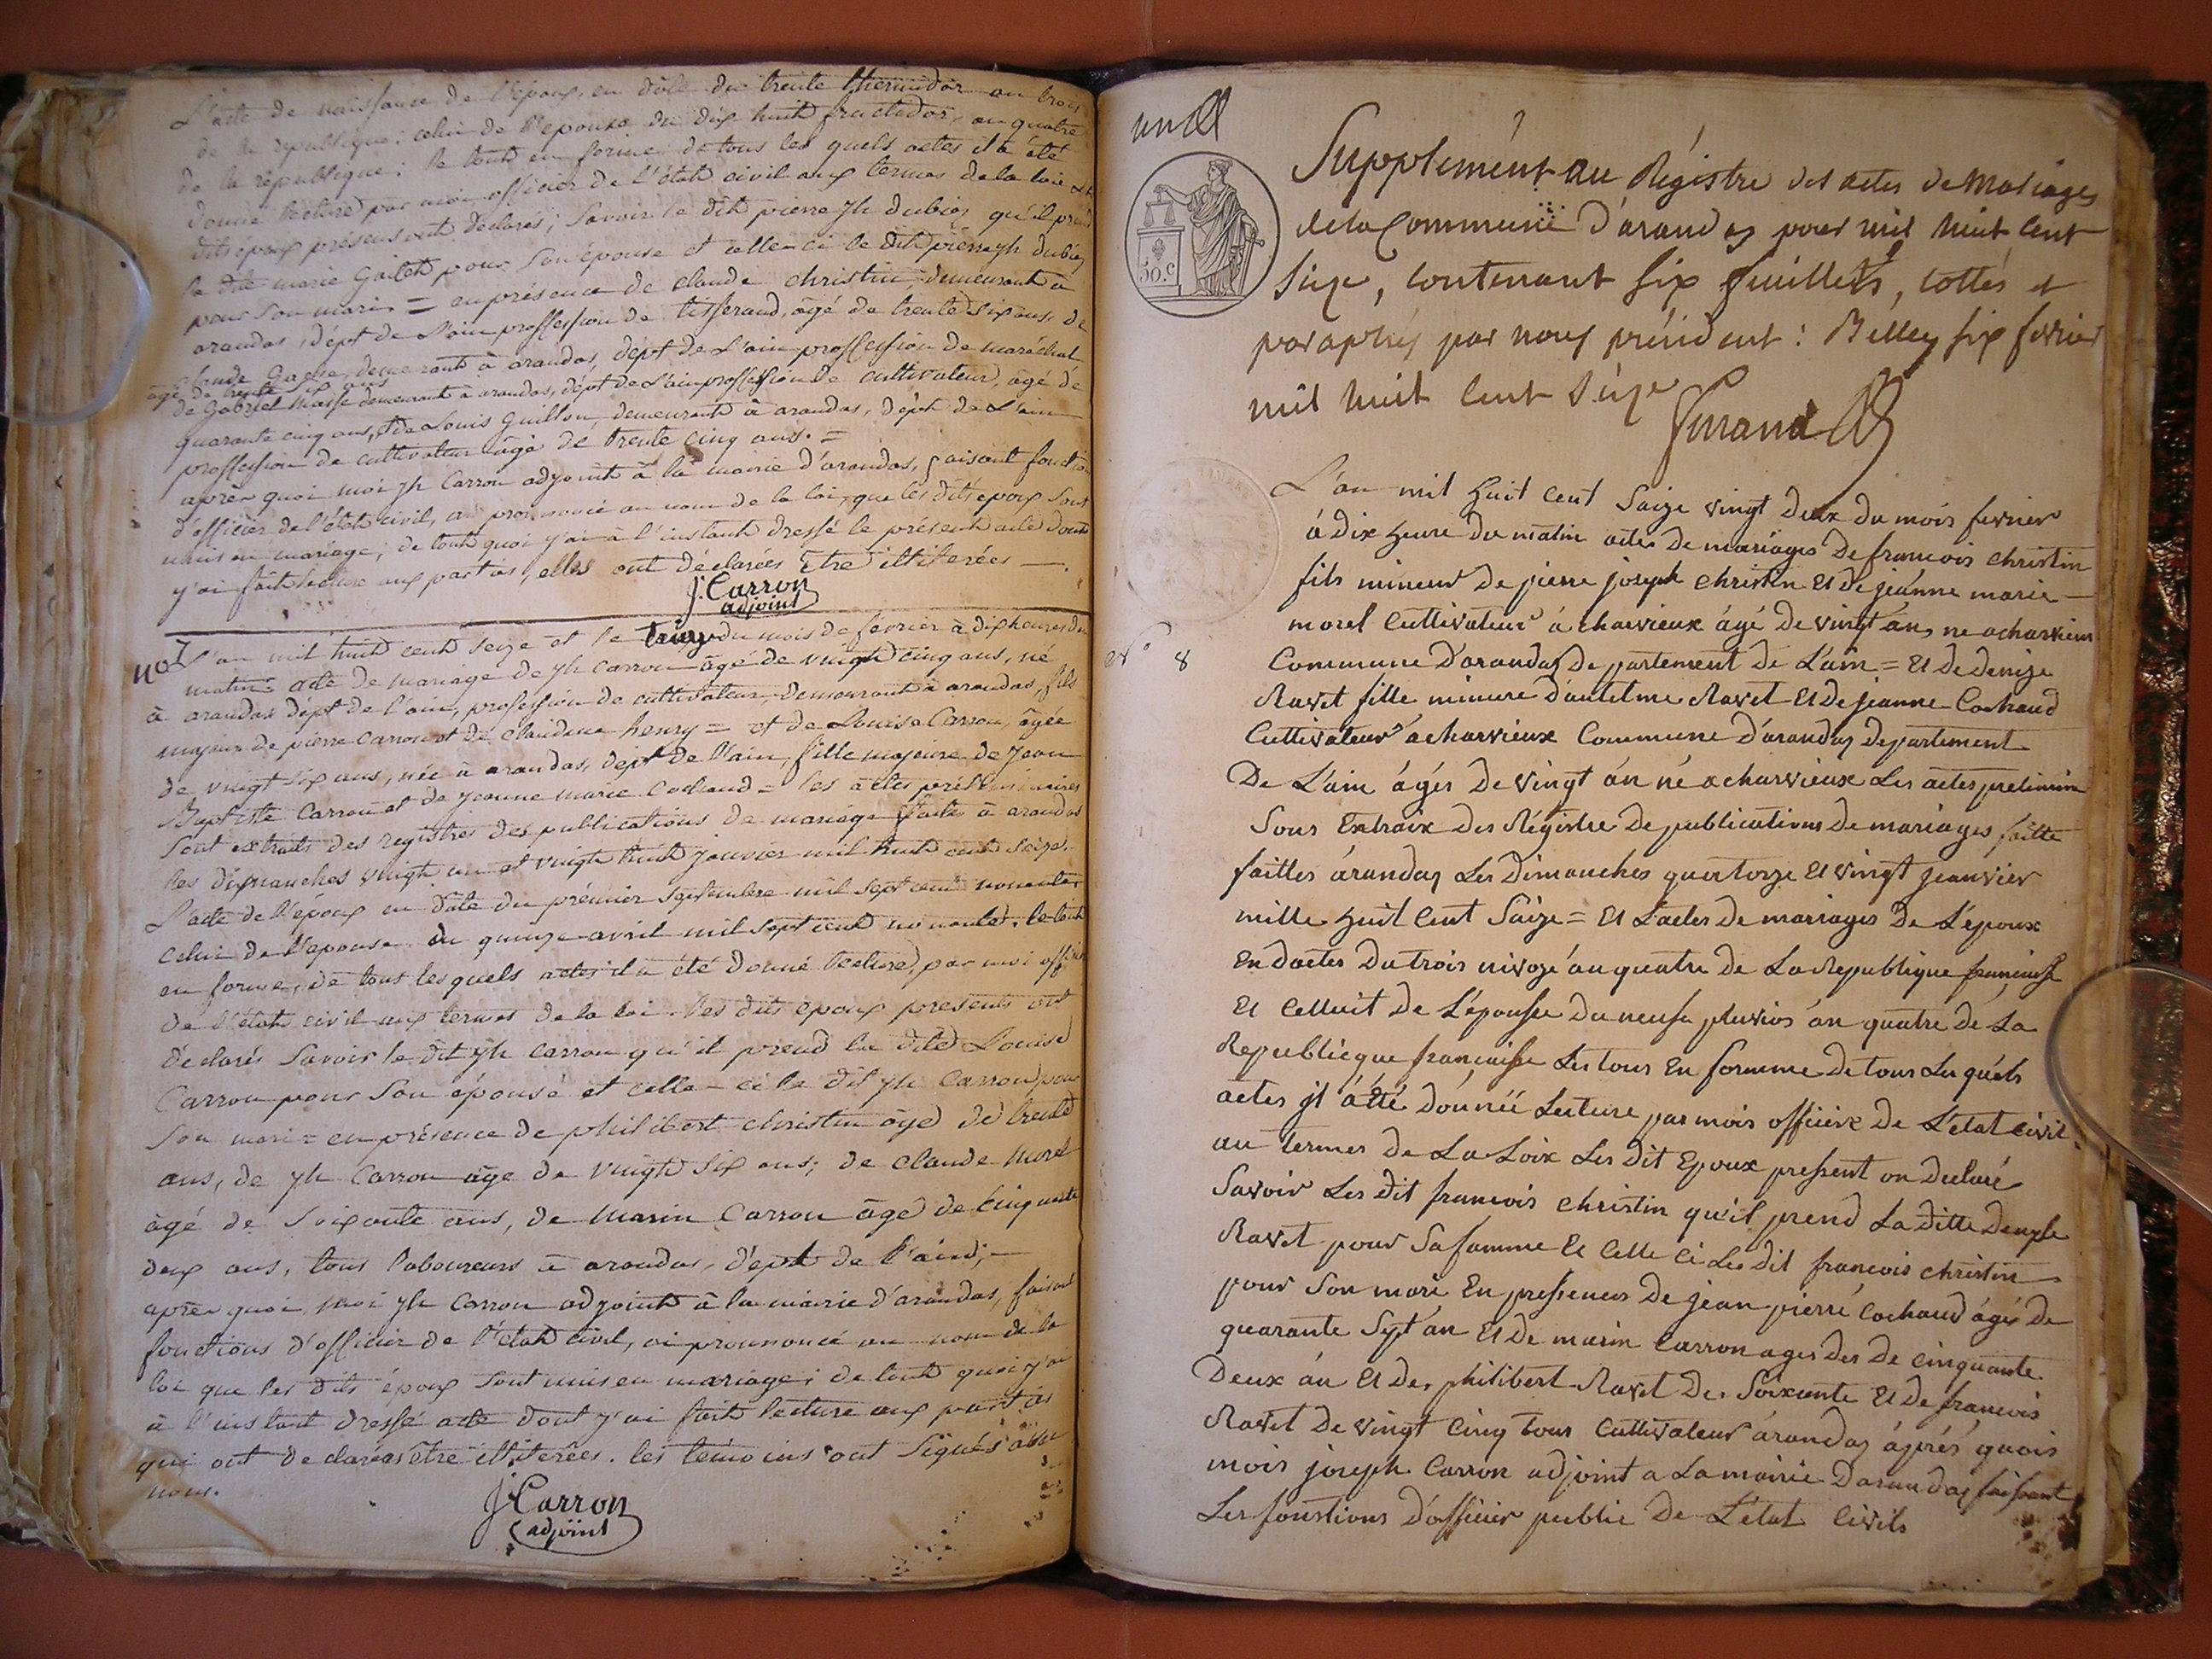 L'acte de naissance de l'epoux, en date du trente thermidor an trois
de la republique: celui de l'epouse du dix huit fructidor, an quatre
de la république; le tout en forme: de tous les quels actes il a été
donné lecture par moi officier de l'état civil aux termes de la loi
dits epoux présens ont déclarés; savoir le dit pierre jh dubiez qu'il prend
la dite marie Gailet pour son épouse et celle-ci le dit pierre jh dubiez
pour son mari = en présence de claude christin demeurant à
arandas, dépt de l'ain proffession de tisserand, âgé de trente six ans, de
claude demeurant à arandas, dépt de l'ain proffession de maréchal
âgé de trente six ans
de Gabriel masse demeurant à arandas, dépt de l'ain proffession de cultivateur, âgé de
quarante cinq ans, et de Louis Guillon, demeurant à arandas, dépt de l'ain
proffession de cultivateur âgé de trente cinq ans. =
après quoi moi jh Carron adjoint à la mairie d'arandas, faisant fonction
d'officier de l'état civil, ai prononcé au nom de la loi, que les dits epoux sont
unis en mariage; de tout quoi j'ai à l'instant dressé le présent acte dont
j'ai fait lecture aux parties, elles ont déclarées être illiterées —.
J. Carron
adjoint
no 7 L'an mil huit cent seize et le treize du mois de février à dix heures du
matin acte de mariage de jh Carron âgé de vingt cinq ans, né
à arandas dépt de l'ain, profession de cultivateur, demeurant à arandas, fils
majeur de pierre Carron et de claudine henry = et de Louise Carron, âgée
de vingt six ans, née à arandas, dépt de l'ain, fille majeure de jean
Baptiste Carron et de jeanne marie Cochaud = les actes préliminaires
sont extraits des registres des publications de mariage faites à arandas
les dimanches vingt un et vingt huit janvier mil huit cent seize.
L'acte de l'époux en date du prémier septembre mil sept cent nonante
celui de l'epouse du quinze avril mil sept cent nonante. le tout
en forme, de tous lesquels actes il a été donné lecture, par moi officier
de l'état civil aux termes de la loi. les dits epoux presents ont
déclarés savoir le dit jh Carron qu'il prend la dite Louise
Carron pour son épouse et celle-ci le dit jh Carron pour
son mari = en présence de philibert christin âgé de trente
ans, de jh Carron âgé de vingt six ans; de claude morel
âgé de soixante ans, de marin Carron âgé de cinquante
deux ans, tous laboureurs à arandas, dépt de l'ain; —
après quoi, moi jh Carron adjoint à la mairie d'arandas, faisant
fonctions d'officier de l'état civil, ai prononcé au nom de la
loi que les dits époux sont unis en mariage; de tout quoi j'ai
à l'instant dressé acte dont j'ai fait lecture aux parties
qui ont declarées être illiterées. les témoins ont signés avec
nous.
J. Carron
adjoint
un
Supplément au Régistre des actes de Mariages
de la Commune d'arandas pour mil huit cent
seize, contenant six feuillets, cottés et
paraphés par nous président: Belley six fevrier
mil huit cent seize
50.c
L'an mil huit cent saize vingt deux du mois fevrier
à dix heure du matin actes de mariages de francois christin
fils mineur de pierre joseph christin et de jeanne marie —
morel cultivateur à charvieux âgé de vingt an, ne acharvieux
no 8 Commune d'arandas departement de L'ain = et de denize
Ravet fille mineure d'antelme Ravet et de jeanne Cochaud
cultivateur acharvieux Commune d'arandas departement
De L'ain âgés de vingt ân né acharvieux Les actes prelimin
sous Extraix des Régistre de publications de mariages faitte
faittes árandas Les dimanches quatorze et vingt jeanvier
mille huit Cent saize = et Lactes de mariages de L'époux
en dactes du trois nivoze an quatre de La Republique francaisse
et celluit de L'épousse du neufu pluvios án quatre de La
Republicque francaisse Les tous En formme de tous Les quels
actes il áété donnéé Lecture par mois officiére de L'etat civil
au termes de La Loix Les dit Epoux pressent on declaré
savoir Les dit francois christin qu'il prend La ditte denise
Ravet pour sa famme et Celle ci Les dit francois christin
pour son mari En pressences de jean pierre Cochaud ágés de
quarante sept án et de marin Carron ages des de cinquante
Deux án et des philibert Ravet de soixante et de francois
Ravet de vingt cinq tous cultivateur árandas áprés quois
mois joseph Carron adjoint a La mairie Darandas faissant
Les fonstions d'officier public de L'état civils